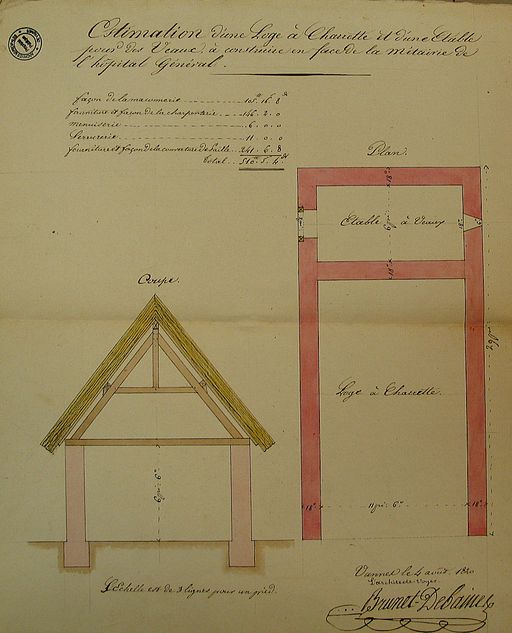 Estimation d'une Loge à Charrette et d'une Etable
pour des Veaux, à construire en face de la métairie de
l'hôpital Général.
façon de la maçonnerie 105 16 8
fourniture et façon de la charpenterie 146 2 0
menuiserie 6 0 0
Serrurerie 11 0 0
fourniture et façon de la couverture de paille 241 6 8
Total 510 5 4
Plan.
18°
Etable à Veaux
18°
Coupe.
Loge à Charrette.
6 pi. 6°
18° 11 pi. 6° 18°
L'Echelle est de 3 lignes pour un pied.
Vannes le 4 août
L'architecte Voyer
Brunet-Debaines